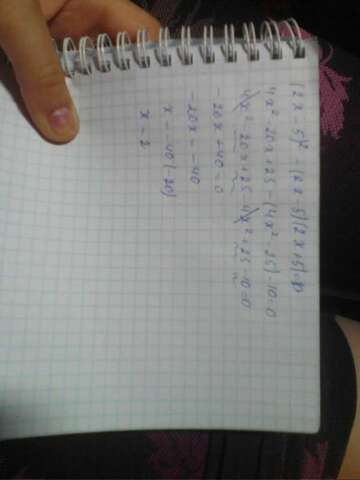 (2x - 5)² - (2x - 5)(2x + 5) =
4x² - 20x + 25 - (4x² - 25) - 10 = 0
4x² - 20x + 25 - 4x² + 25 - 10 = 0
- 20x + 40 = 0
- 20x = - 40
x = - 40 (- 20)
x = 2